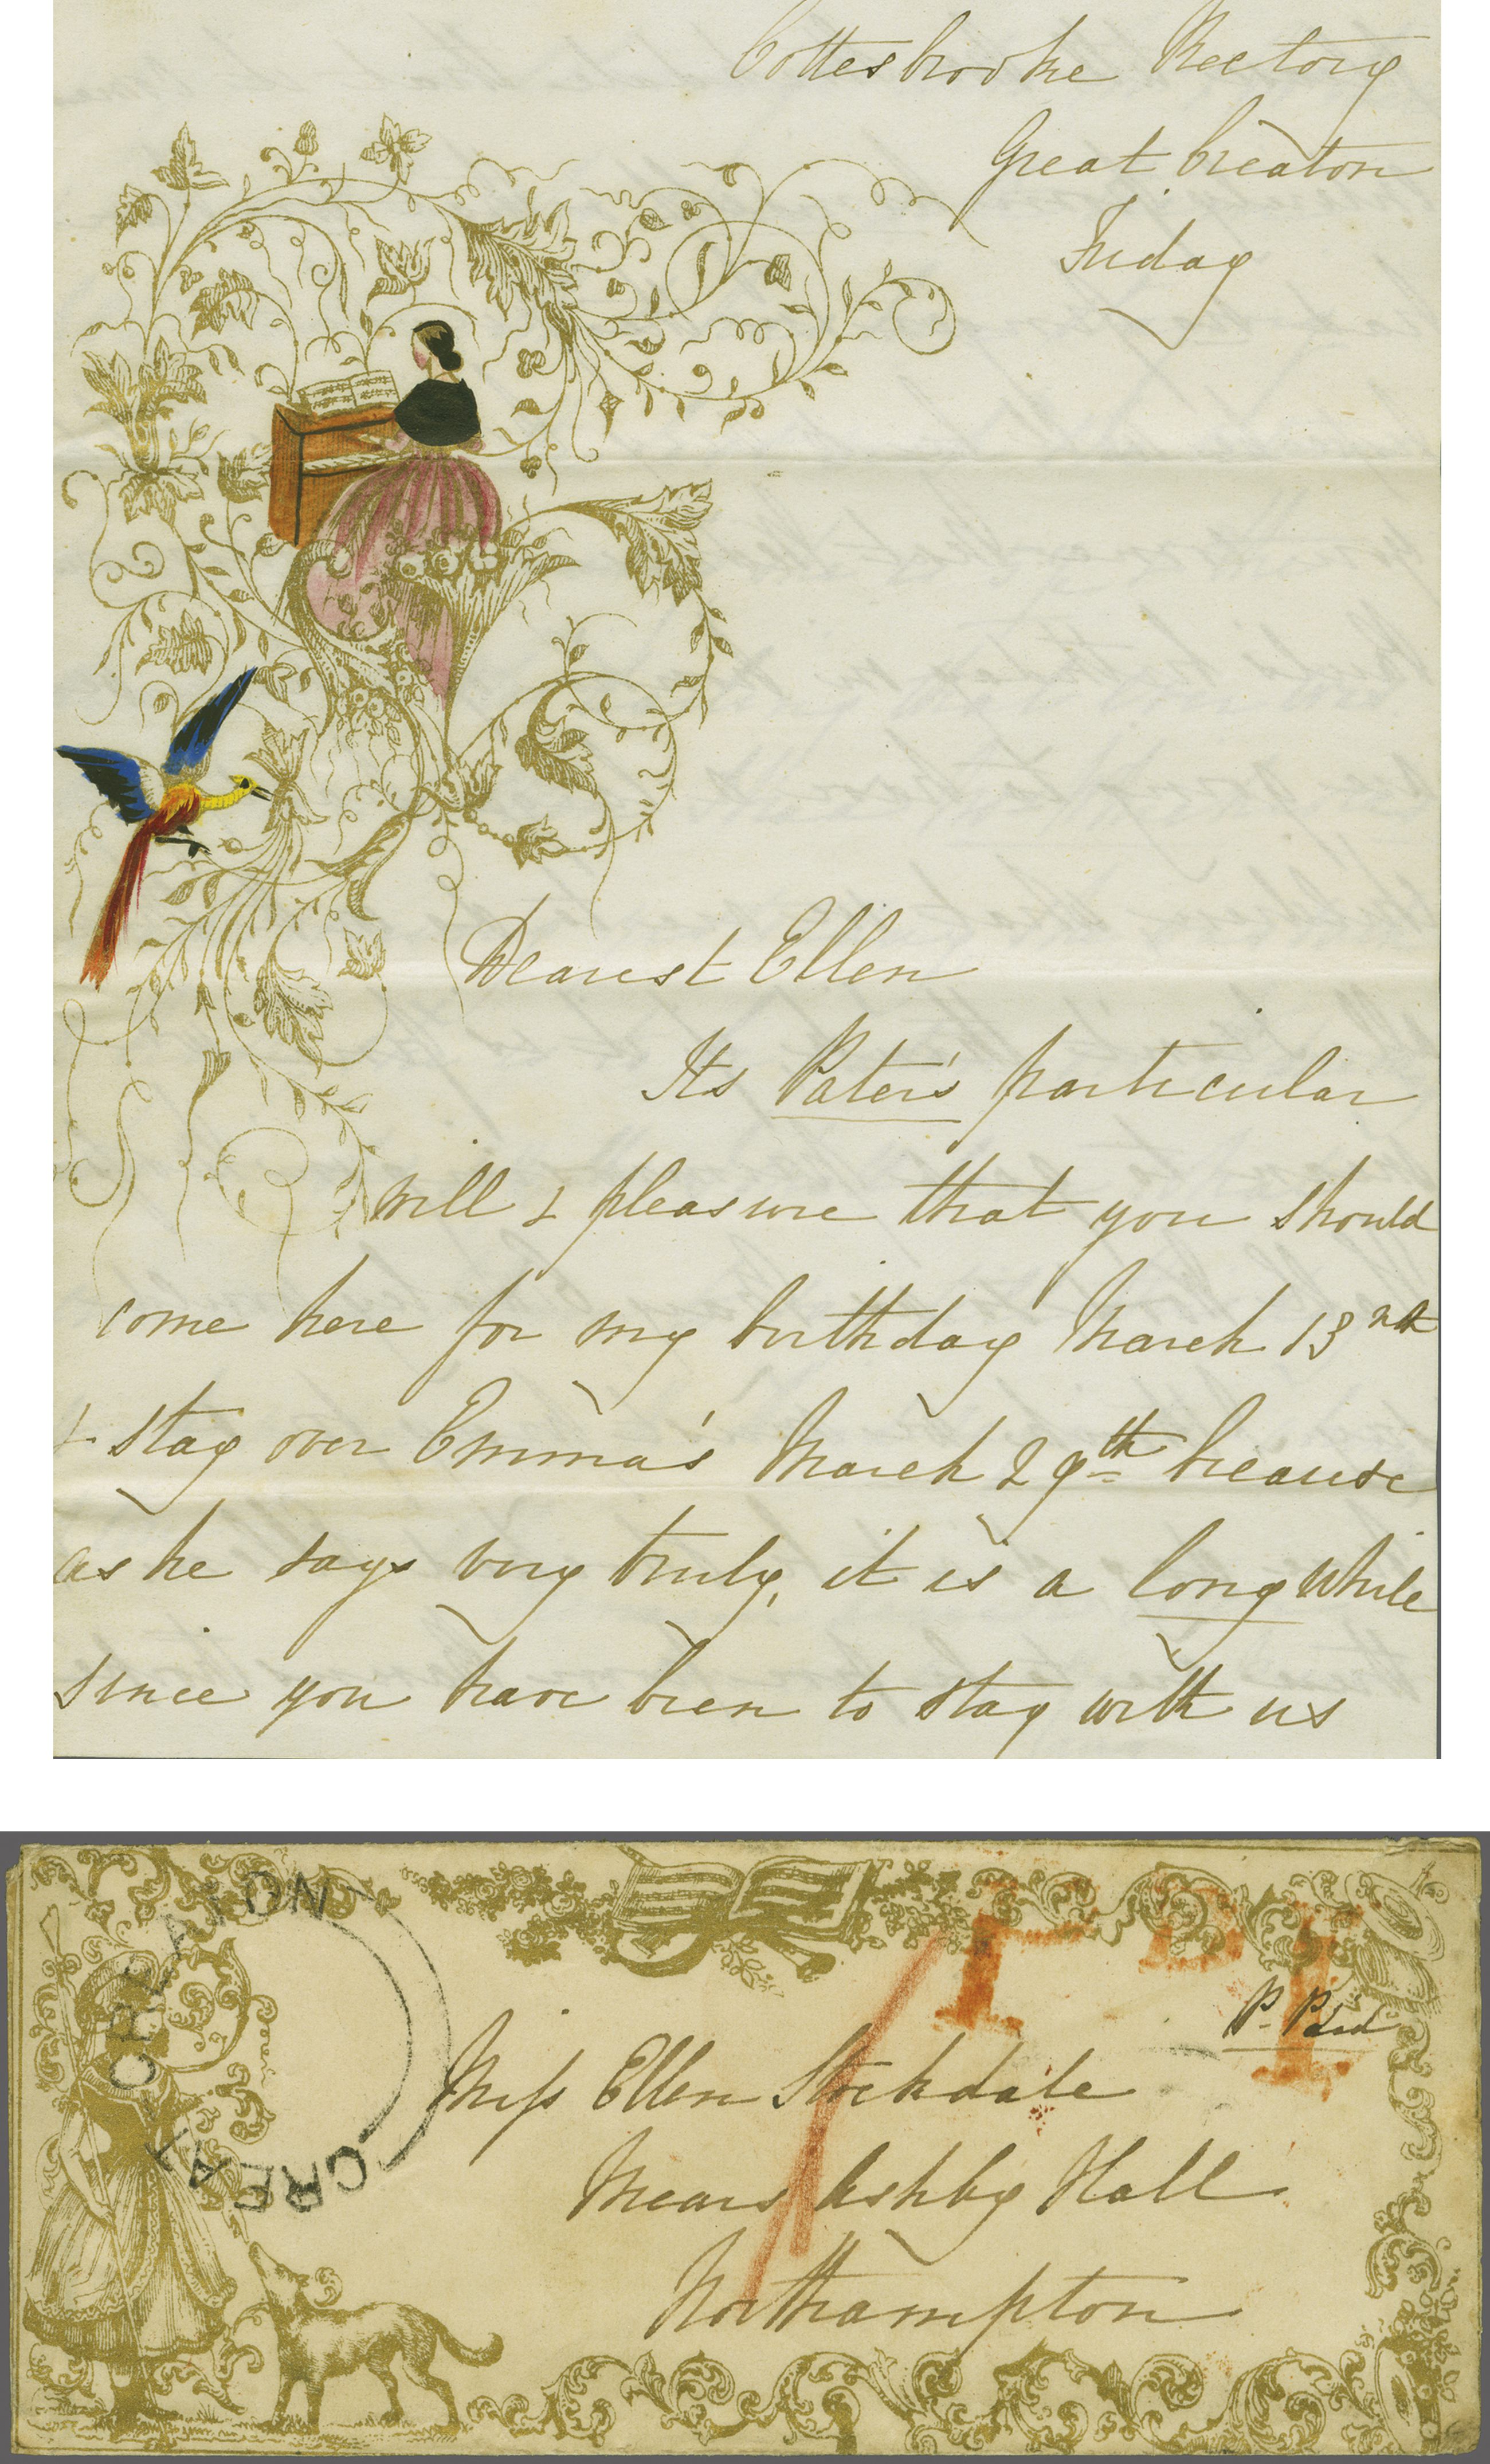 Cottesbrooke Rectory
Great Creaton
Friday
Dearest Ellen
Its Pater's particular
will & pleasure that you should
come here for my birthday March 13
& stay over Emma's March 29th because
as he says very truly, it is a long while
since you have been to stay with us
GREAT CREATON
P. Paid
Miss Ellen Stockdale
Mears Ashby Hall
Northampton